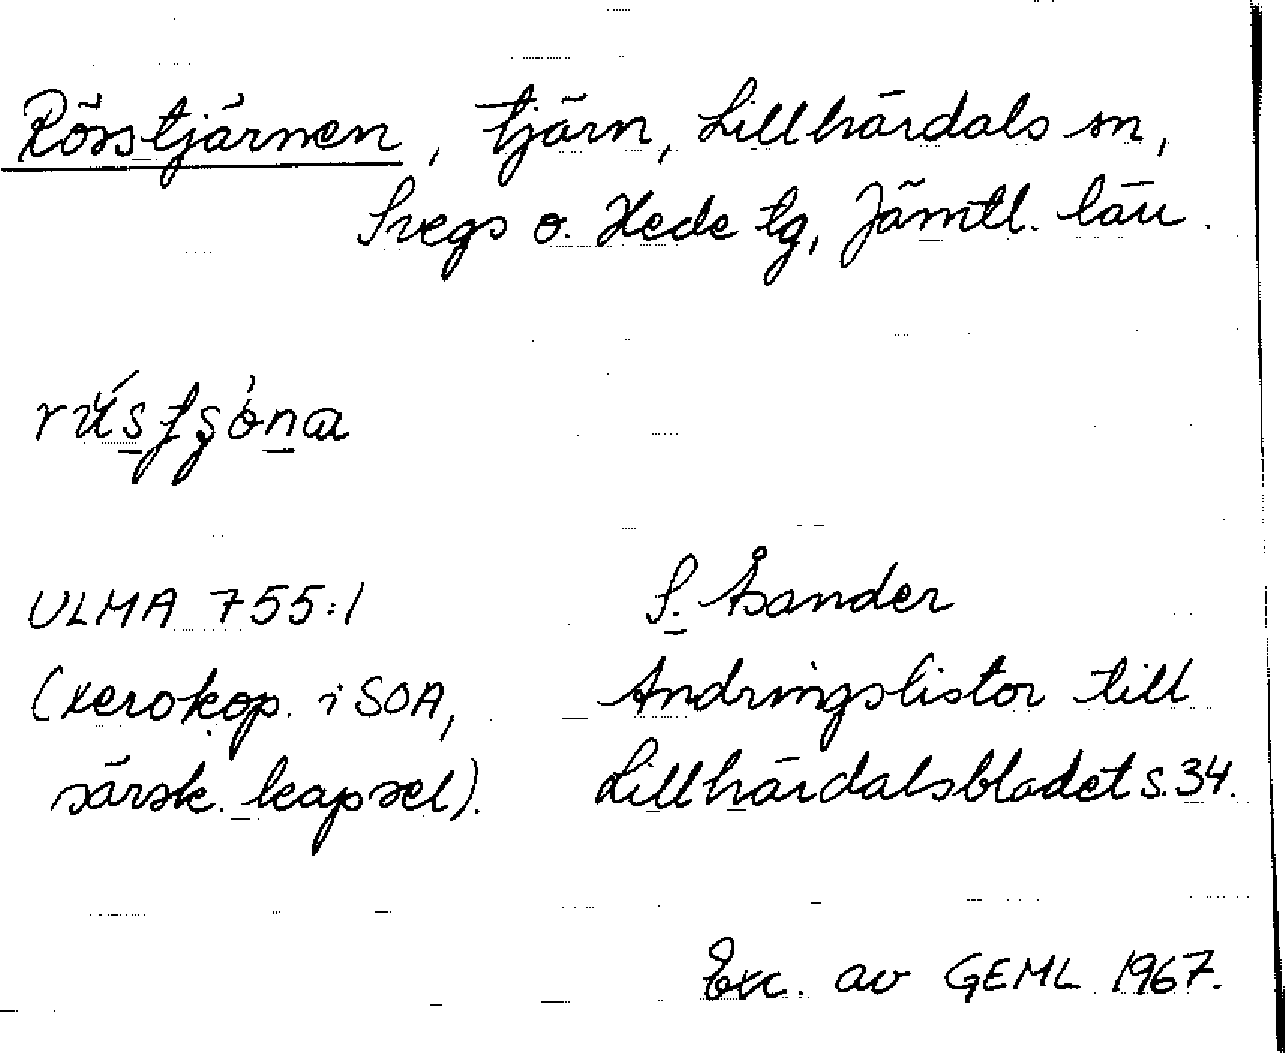 Rösstjärnen, tjärn, Lillhärdals sn,
Svegs o. Hede tg, Jämtl. län.
ULMA 755:1
S. Åsander
(xerokop. i SOA,
Ändringslistor till
särsk. kapsel).
Lillhärdalsbladet s. 34.
Exc. av GEML 1967.